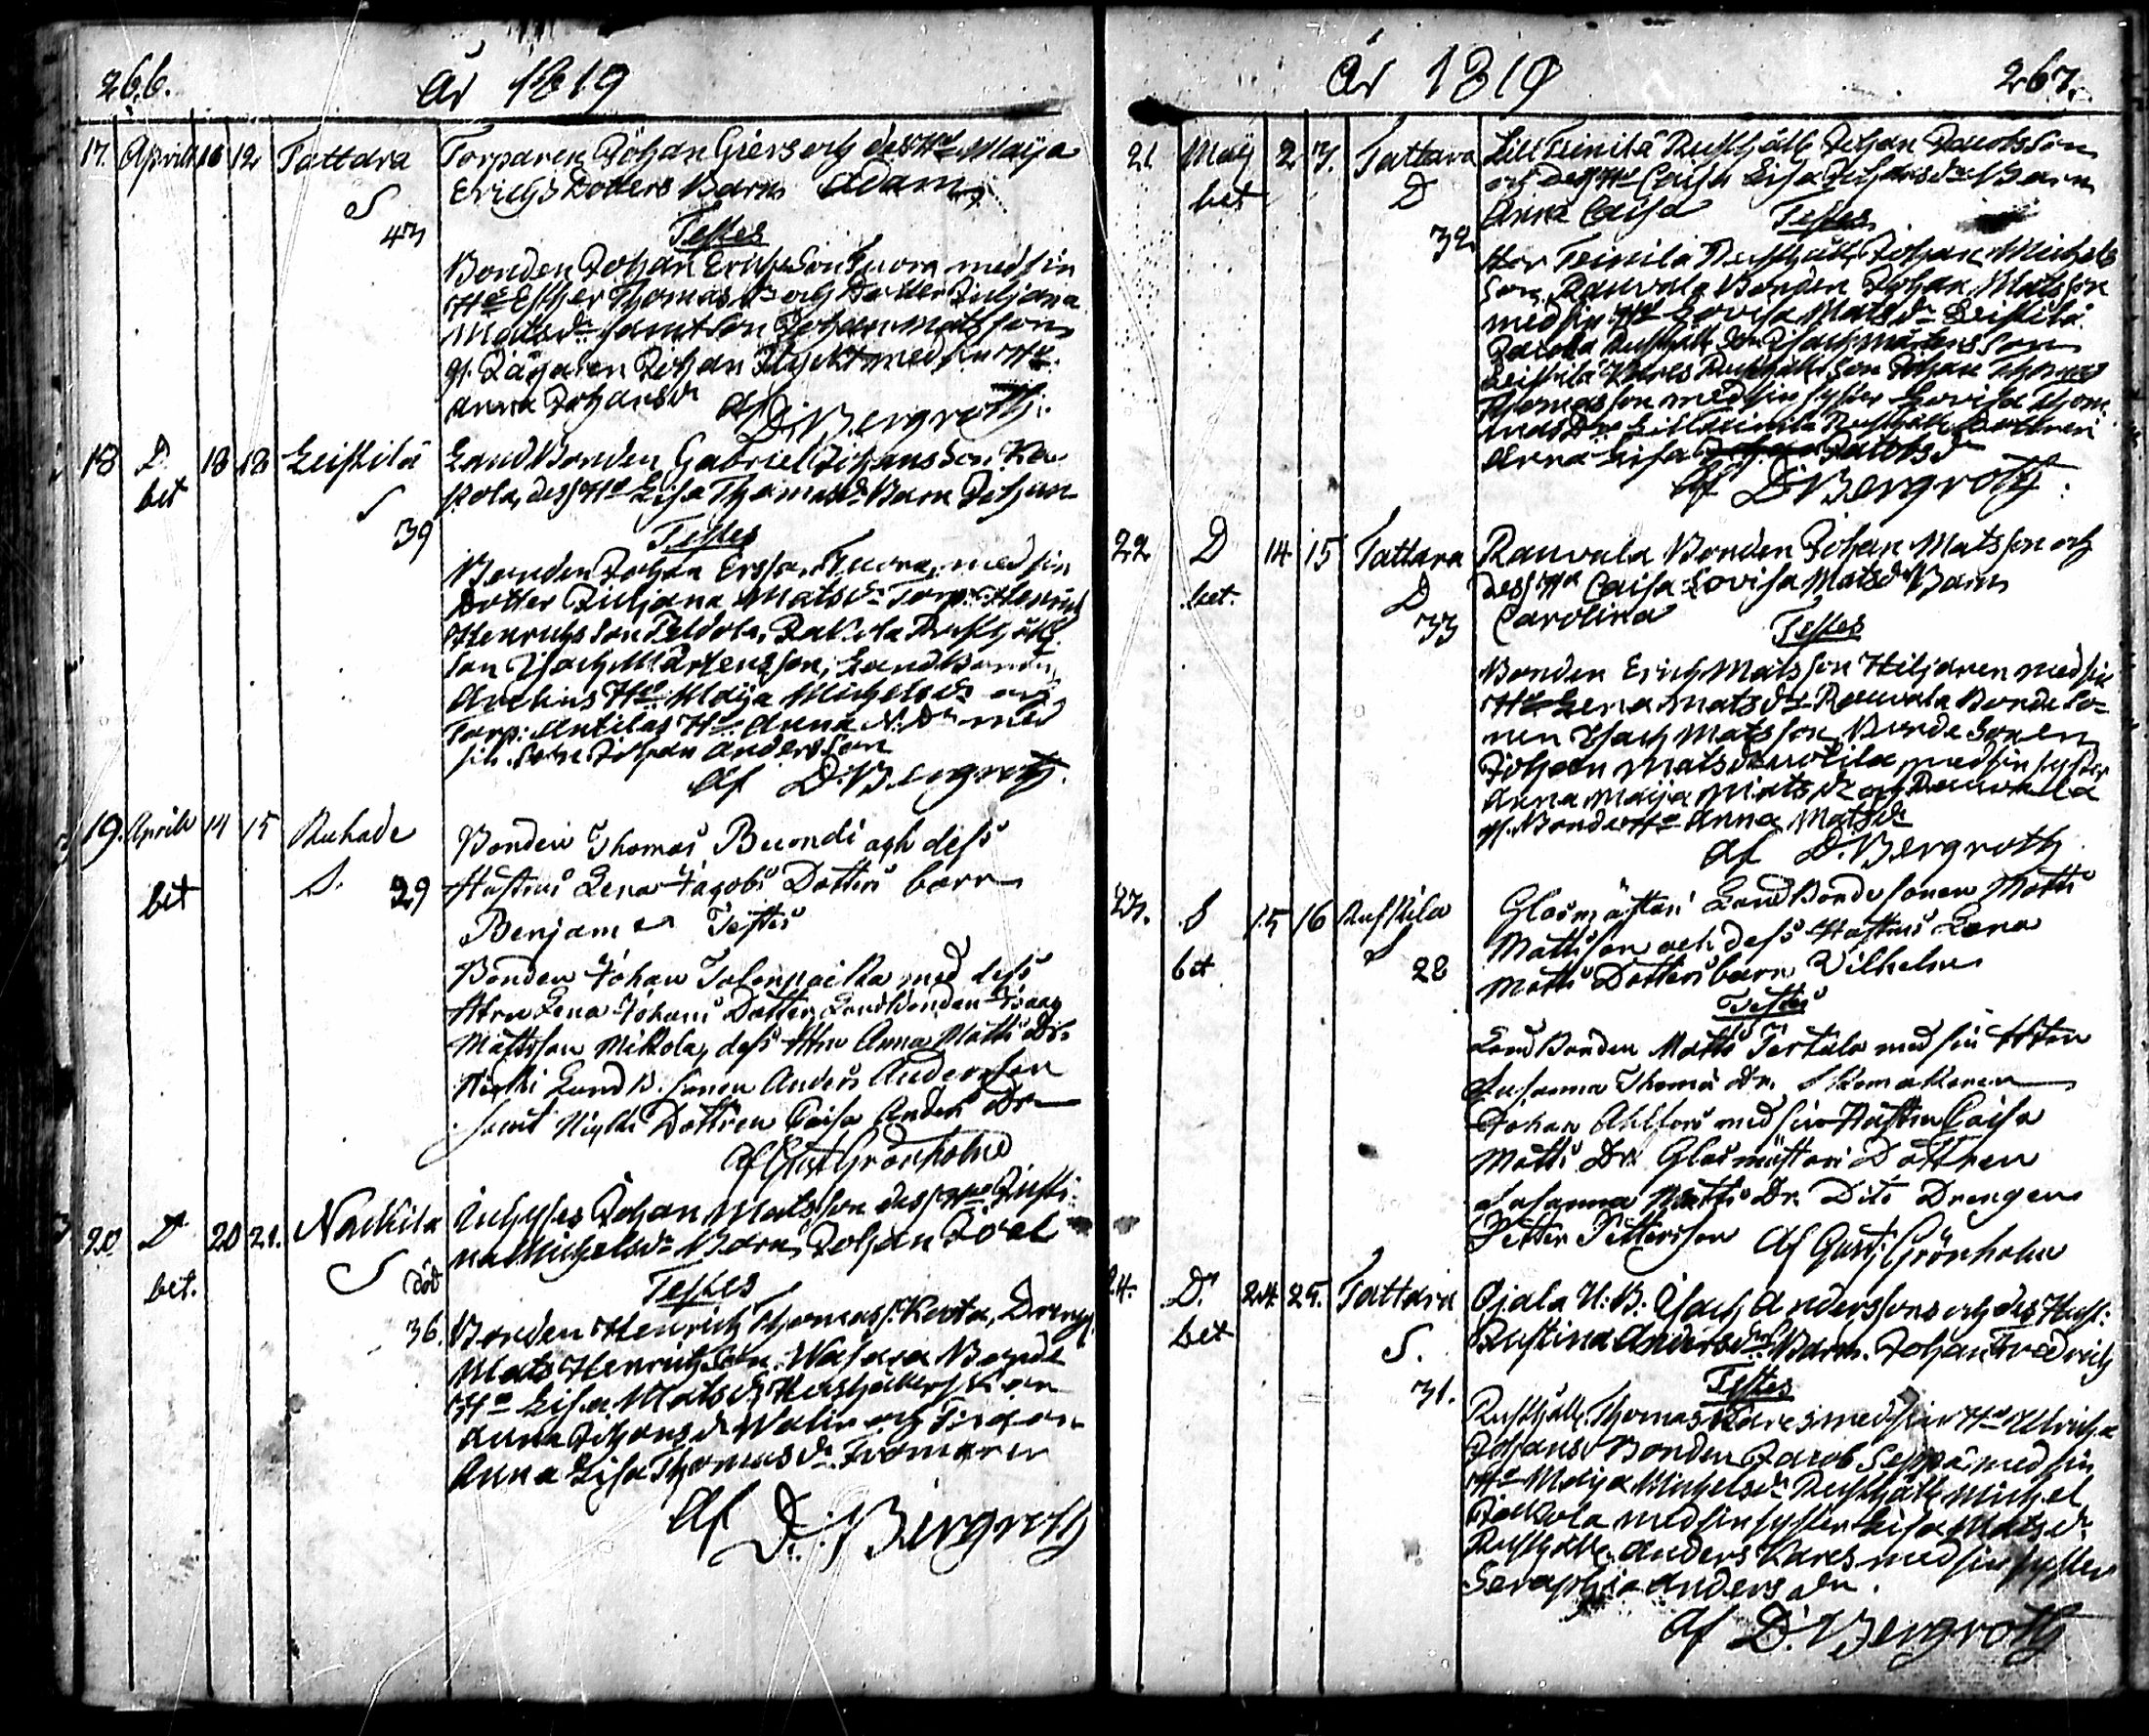 266.
År 1819
17. Aprill 10 12 Tattara
S
43
Torparen Johan Giers och dess Ha Maija
Erichs Dotters Barn Adam
Testes
Bonden Johan Ericsson Tuora med sin
Ha Esther Thomas dr och Dotter Juljana
Mats dr samt Son Johan Matsson
gl. Jägaren Johan Flyckt med sin Ha
Anna Johans dr
af D. Bergroth.
18 D 18 18 Leistilä
bet
S
39
Land Bonden Gabriel Johansson Ka
pola, dess Ha Lisa Thomas dr Barn Johan
Testes
Bonden Johan Ersson Tuora med sin
Dotter Juljana Mats dr Torp. Henrich
Henrichsson Peldola, Rusthåll
son Isach Mårtensson, Land Bonden
Ha Maija Michels dr och
Torp: Antilas Ha Anna N. Dr med
sin Son Johan Andersson
af D. Bergroth.
19. Aprill 14 15 Ruhade
bet
S. 29
Bonden Thomas Buondi och dess
Hustrus Lena Jacobs Dotters barn
Benjam Testes
Bonden Johan med dess
Hru Lena Johans Dotter, Landbonden Isaac
Mattsson Mikola, dess Hru Anna Matts Dr
Land B. sonen Anders Andersson
samt Dottren Caisa Anders Dr
af Gust. Grönholm
20. D 20 21. Nackila
bet.
S död
36.
Johan Matsson dess Ha Justi-
na Michels dr Barn Johan Joel
Testes
Bonden Henrich Thomass. Kerta, Dreng.
Mats Henrichsson Wasara Bonde
Ha Lisa Mats dr
Anna Johans dr Walin och Pigan
Anna Lisa Thomas dr
af D. Bergroth
År 1819
267.
21 Maij 2 3. Tattara
bet
D
32
Lill Teinilä Rusthåll Johan Jacobsson
och dess Ha Caisa Lisa Johans dr Barn
Anna Caisa Testes
Stor Teinilä Rusthåll. Johan Michels
son, Rauvala Bonden Johan Matsson
med sin Ha Lovisa Mats dr Leistilä
Jacola Rusthåll Isach Mårtensson
Leistilä Kares Rusthåll son Johan
Thomasson med sin syster Lovisa Thom
mas Dr Lill Teinilä Rusthåll Dottren
Anna Lisa Jacobs dr
af D. Bergroth.
22 D 14 15 Tattara
bet.
D
33
Rauvala Bonden Johan Matsson och
dess Ha Caisa Lovisa Mats dr Barn
Carolina
Testes
Bonden Erich Matsson Hiljanen med sin
Ha Lena Mats dr Rauvala Bonde So-
nen Isach Matsson, Bonde Sonen
Johan Mats med sin syster
Anna Maija Mats dr och Rauvala
gl. Bonde Ha Anna Mats dr
af D. Bergroth
23. S 15 16 Ruskila
bet
S
28
Glasmästari Land Bonde sonen Matts
Mattsson och dess Hustrus Lena
Matts Dotters barn Vilhelm
Testes
Land Bonden Matts Tertala med sin Hstru
Susanna Thomas Dr. Skomakaren
Johan Ahlfors med sin Hustru Caisa
Matts Dr. Glasmästari Dottren
Susanna Matts Dr. Dito Drengen
Petter Pettersson af Gust. Grönholm
24. D. 24. 25. Tattara
bet
S.
31.
Ojala N: B: Isach Anderssons och des Hust:
Justina Anders dr Barn. Johan Fredrich
Testes
Rusthåll. Thomas Kares med sin Ha Ulrica
Johans dr Bonden Jacob Seppä med sin
Ha Maija Michels dr Rusthåll Michel
Jackola med sin syster Lisa Mats dr
Rusthåll. Anders Kares med sin syster
Seraphia Anders dr.
af D. Bergroth